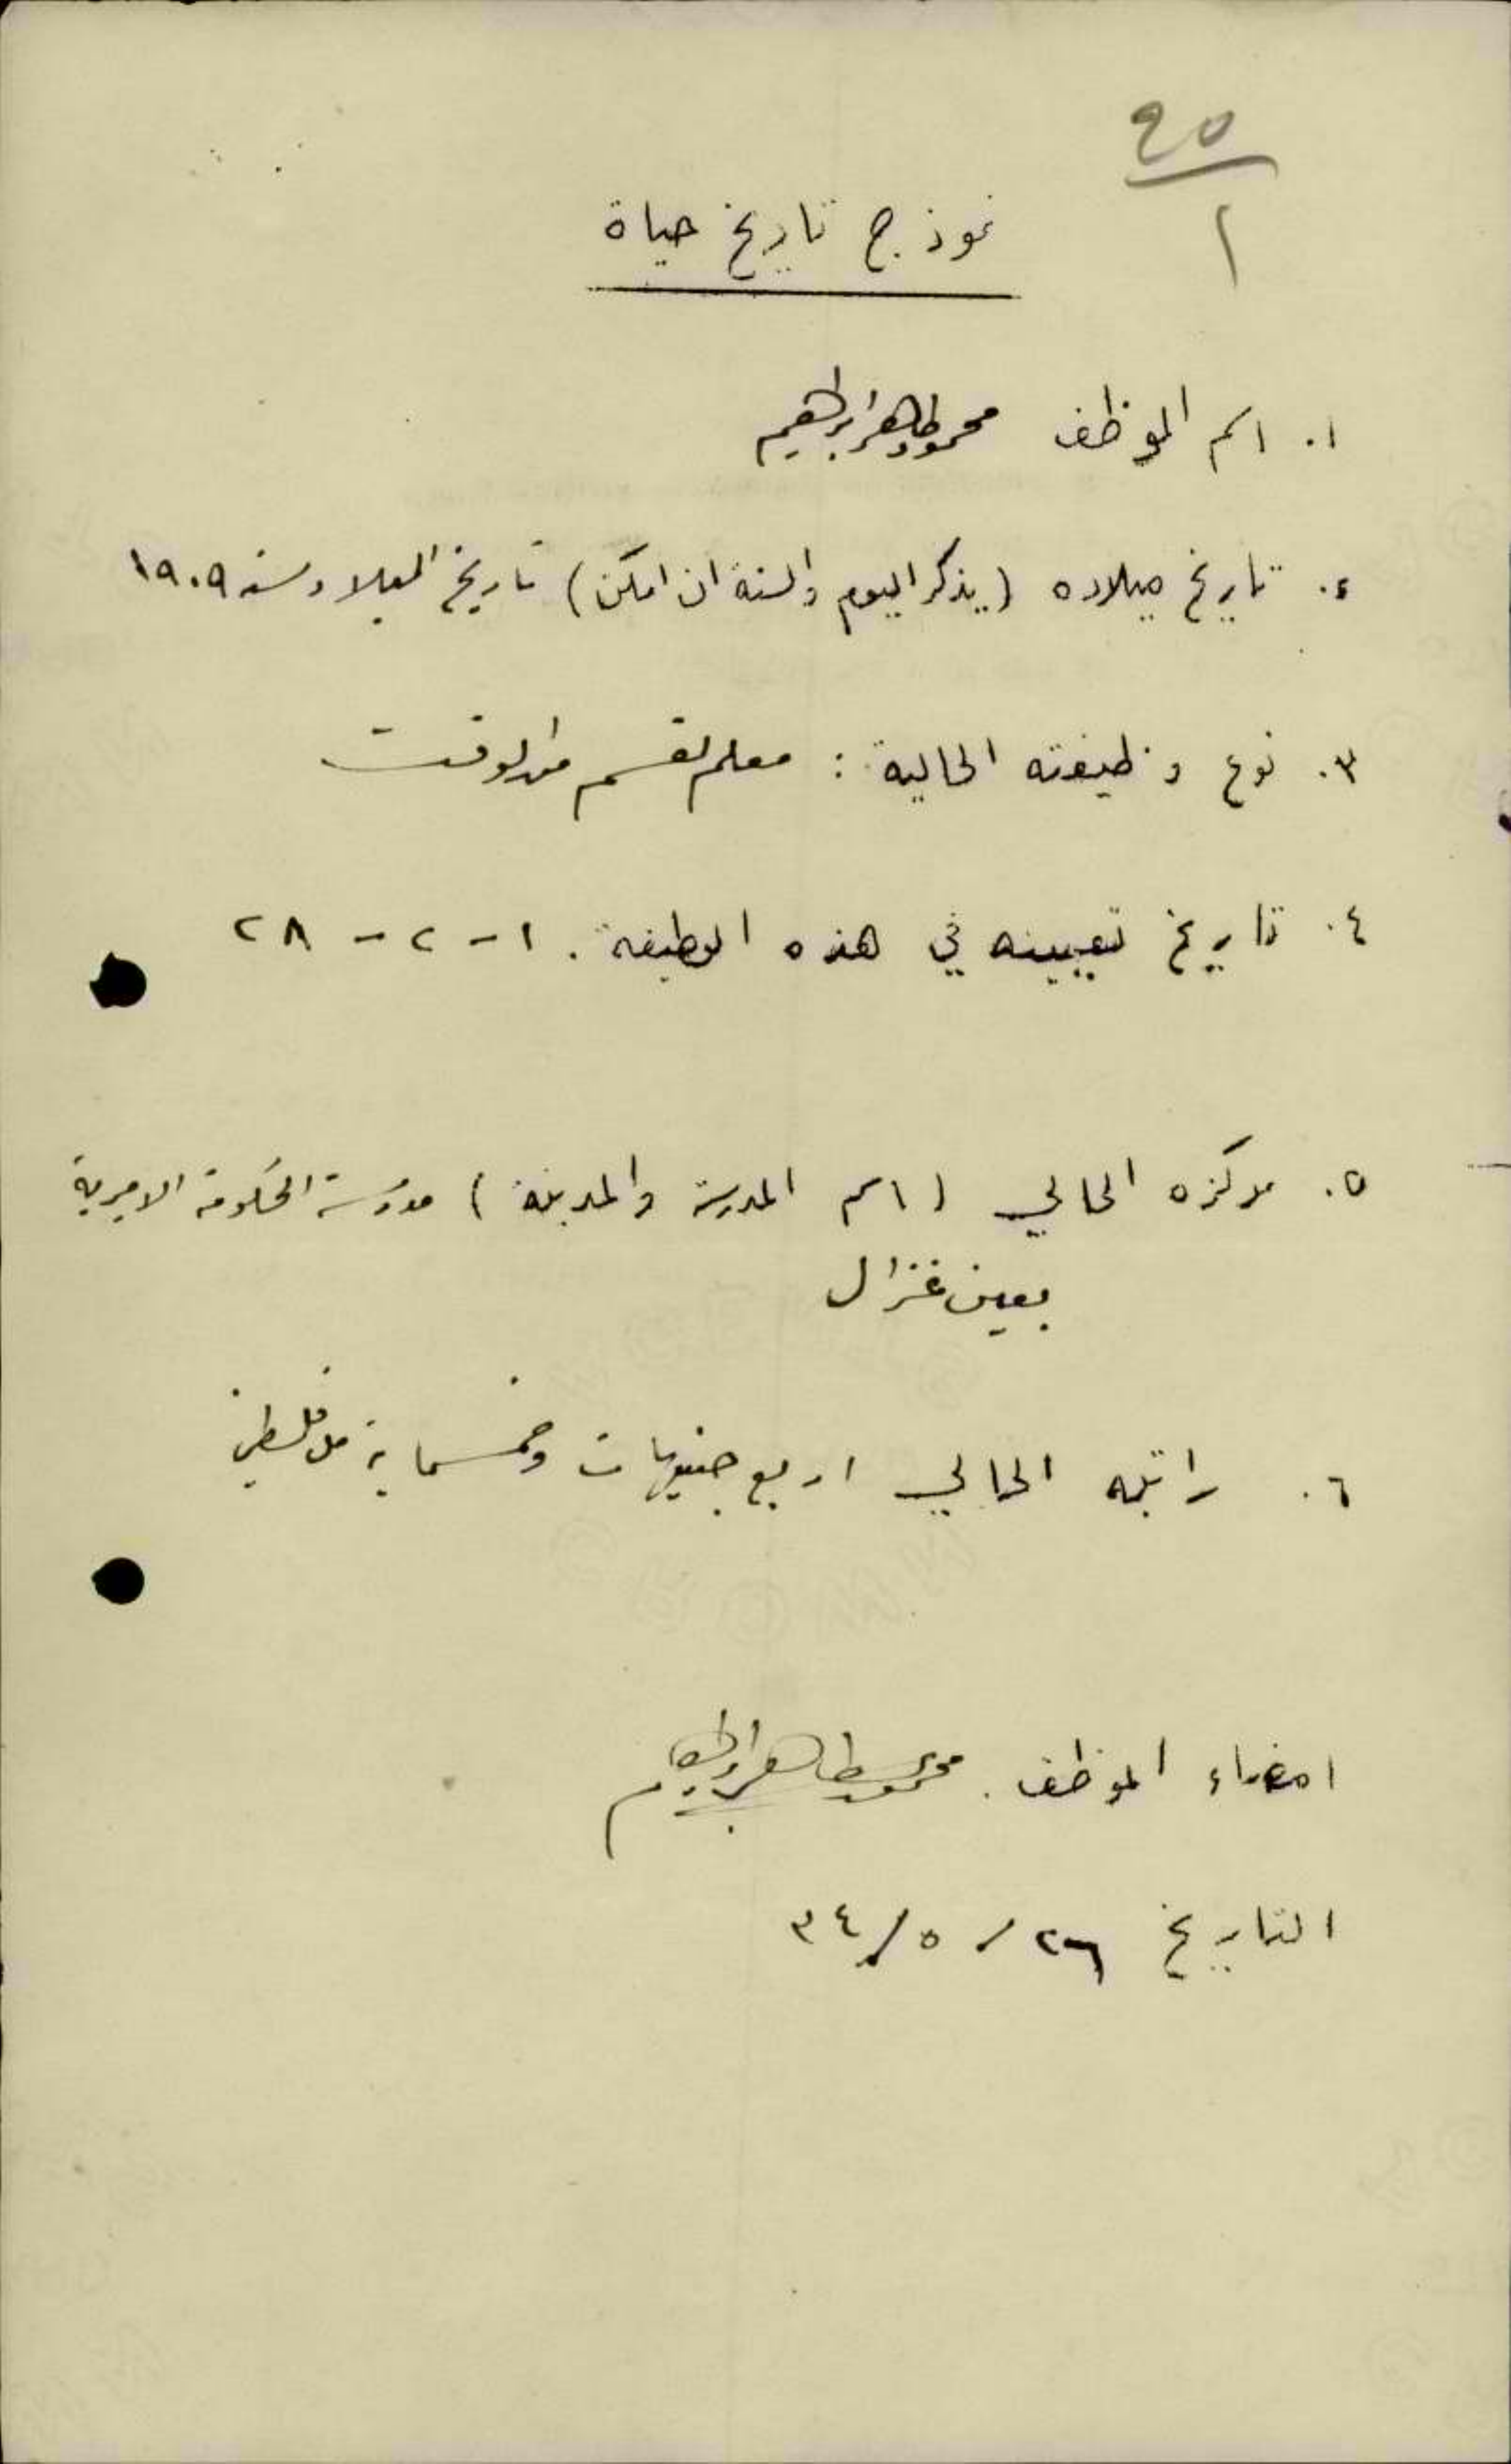 ٢٥
١
نموذج تاريخ حياة
١. اسم الموظف محمود طاهر ابراهيم
٢. تاريخ ميلاده (يذكر اليوم والسنة ان امكن) تاريخ الميلاد سنة ١٩٠٩
٣. نوع وظيفته الحالية : معلم لقسم من الوقت
٤. تاريخ تعيينه في هذه الوظيفة. ١ - ٢ - ٢٨
٥. مركزه الحالي (اسم المدرسة والمدينة) مدرسة الحكومة الاميرية
بعين غزال
٦. راتبه الحالي اربع جنيهات وخمسماية مل فلسطيني
امضاء الموظف. محمود طاهر ابراهيم
التاريخ ٢٦ / ٥ / ٣٤